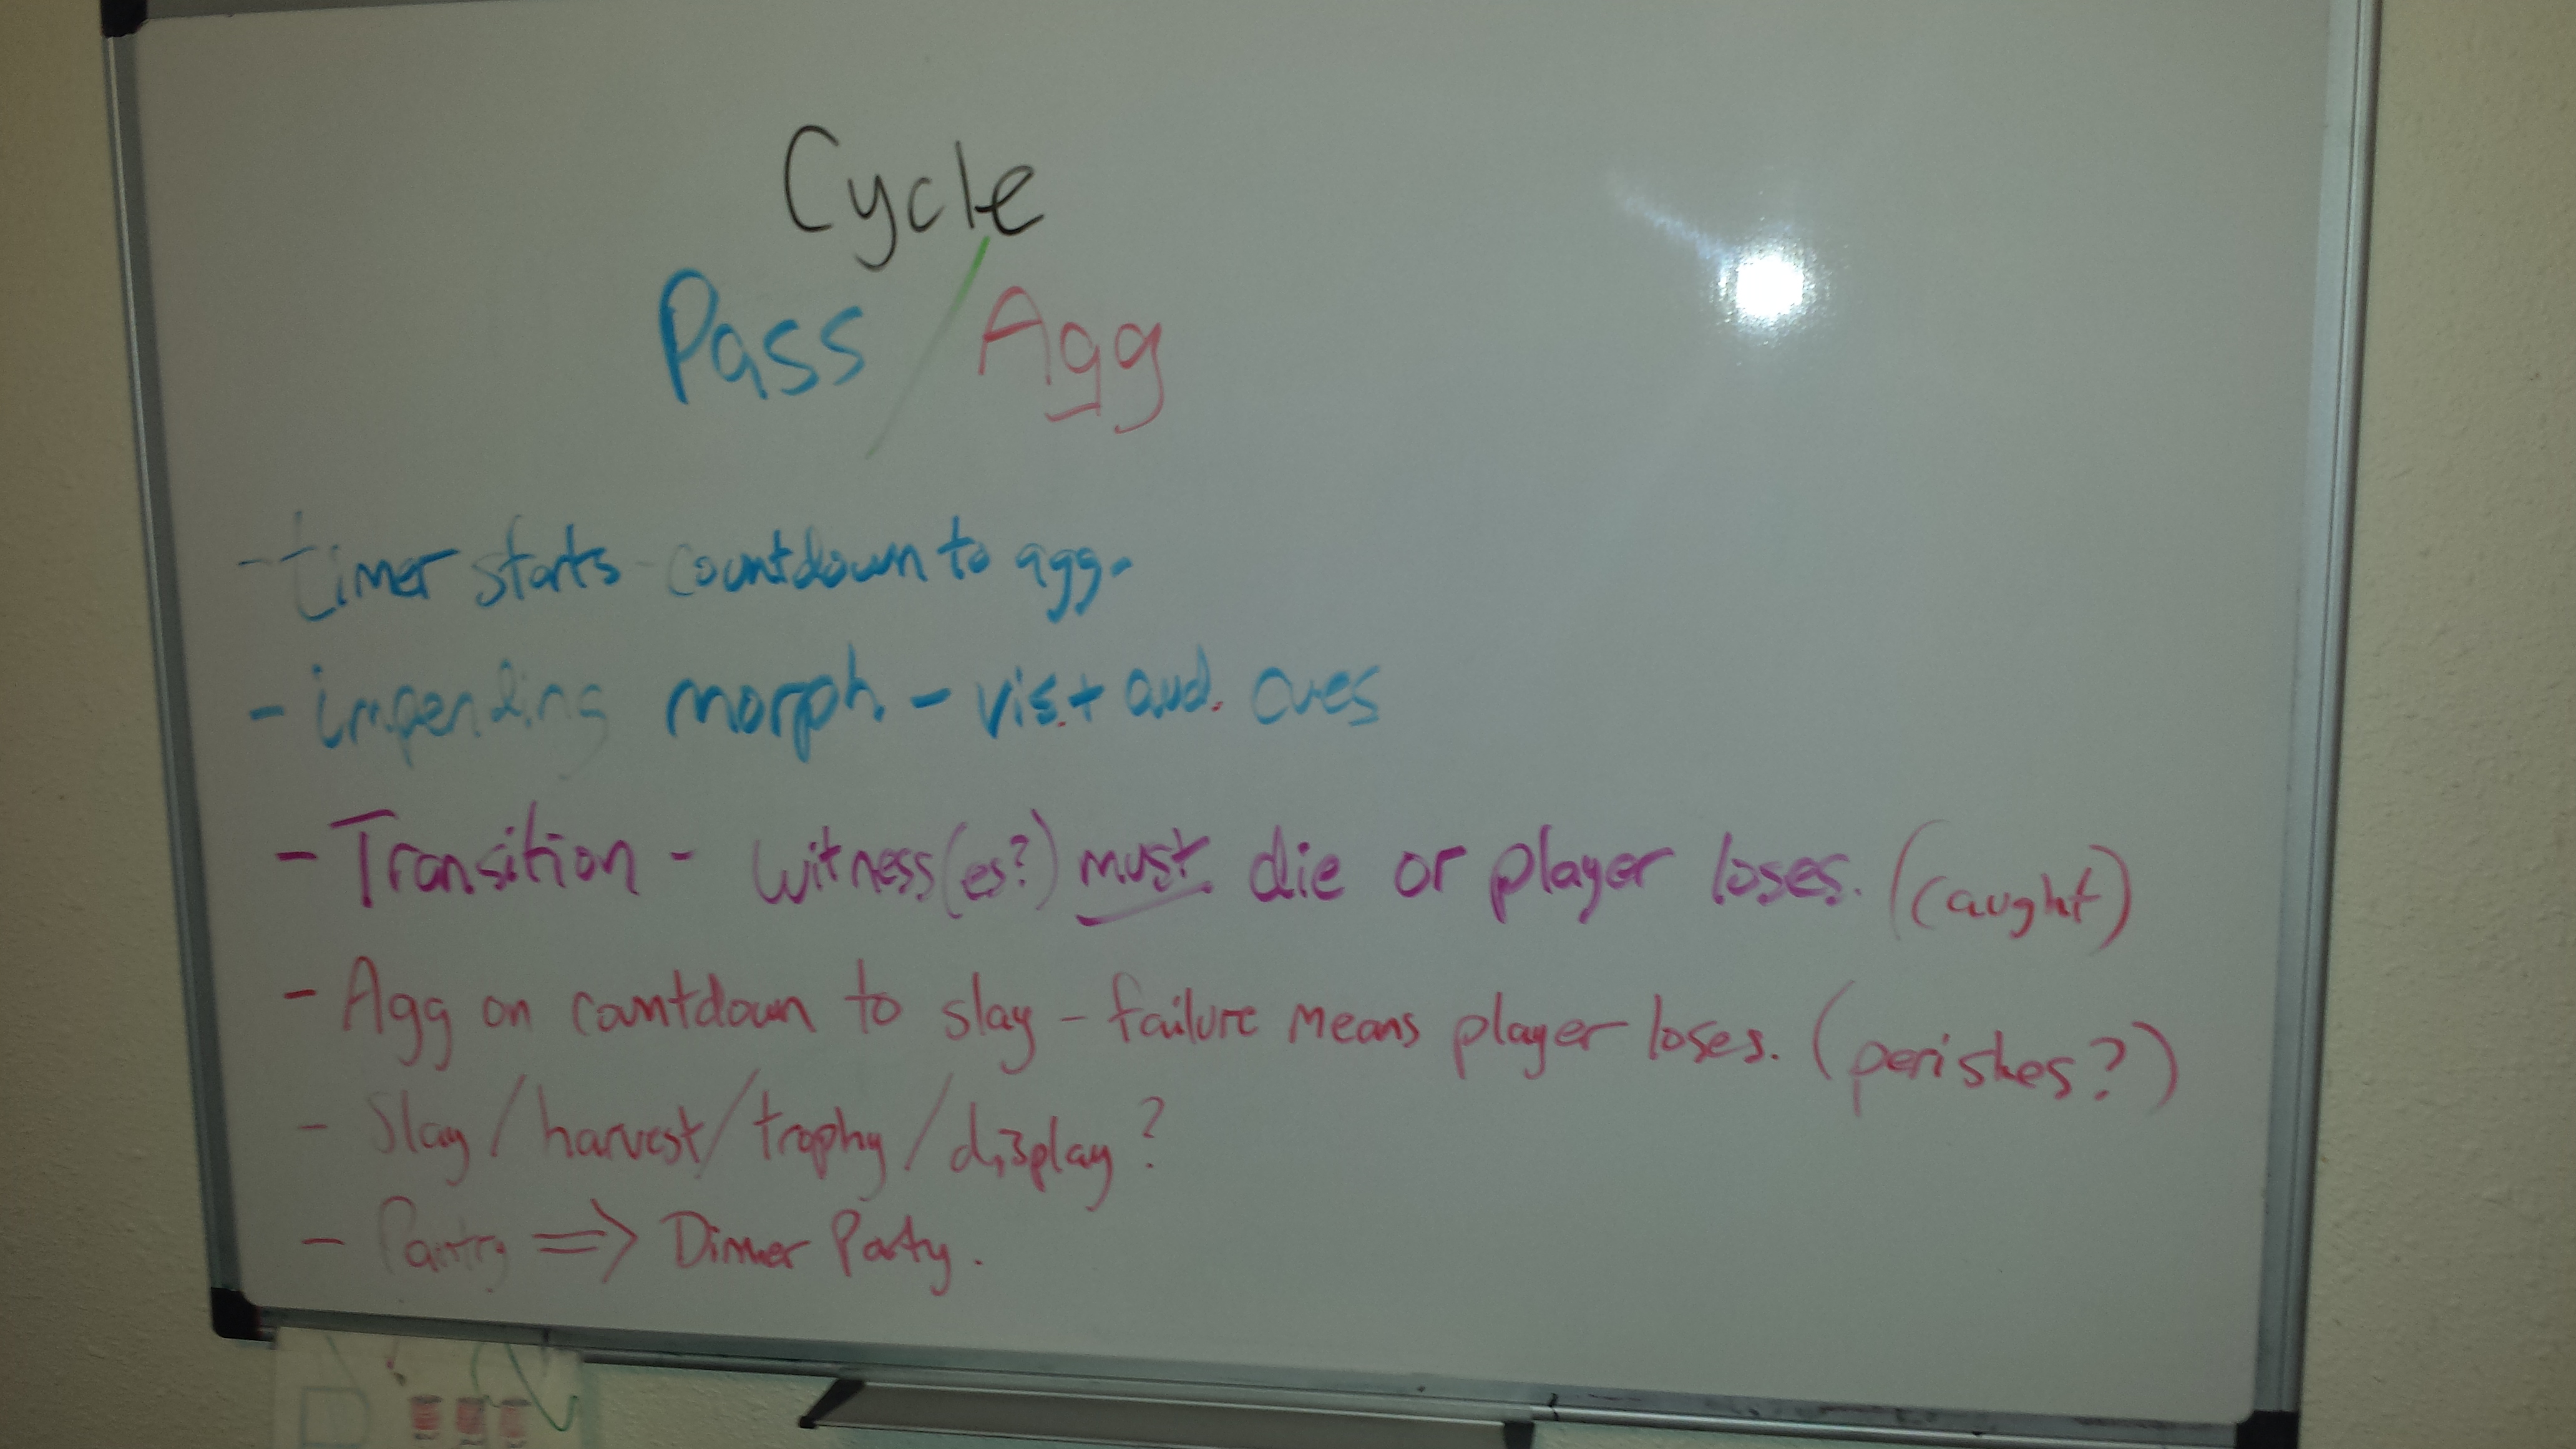 Cycle
Pass / Agg
- timer starts - countdown to agg.
- impending morph. - vis. + aud. cues
- Transition - witness(es?) must die or player loses. (caught)
- Agg on countdown to slay - failure means player loses. (perishes?)
- Slay / harvest / trophy / display?
- Pantry => Dinner Party.